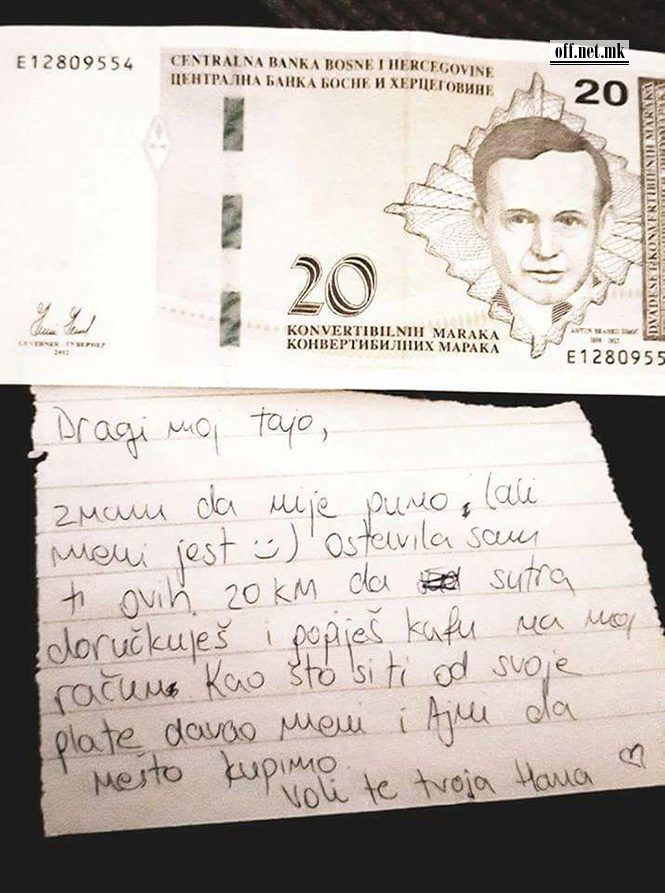 off.net.mk
E12809554
CENTRALNA BANKA BOSNE I HERCEGOVINE
ЦЕНТРАЛНА БАНКА БОСНЕ И ХЕРЦЕГОВИНЕ
20
DVADESET KONVERTIBILNIH MARAKA
20
KONVERTIBILNIH MARAKA
КОНВЕРТИБИЛНИХ МАРАКА
GUVERNER - ГУВЕРНЕР
2012
ANTUN BRANKO ŠIMIĆ
E1280955
Dragi moj tajo,
znam da nije puno, (ali
meni jest :) ostavila sam
ti ovih 20 KM da sutra
doručkuješ i popiješ kafu na moj
račun. Kao što si ti od svoje
plate davao meni i Ajni da
nešto kupimo.
Voli te tvoja Hana ♡